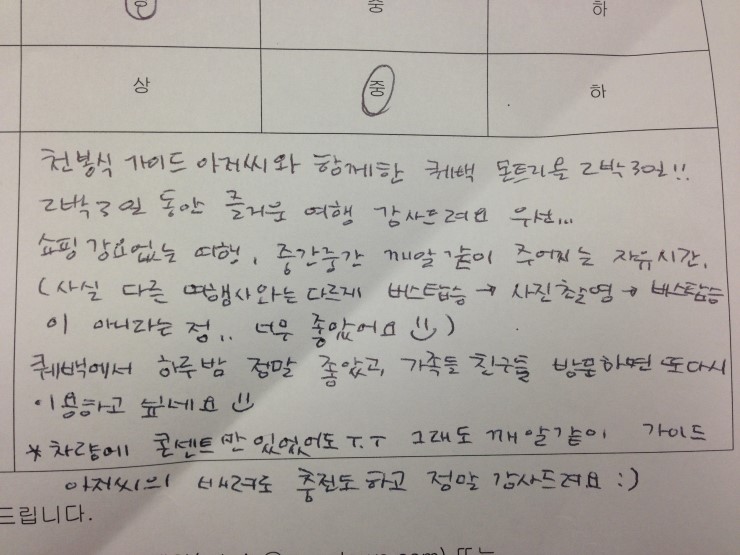 중 하
상 중 하
천봉식 가이드 아저씨와 함께한 퀘백 몬트리올 2박3일!!
2박3일 동안 즐거운 여행 감사드려요 우선...
쇼핑강요없는 여행, 중간중간 깨알같이 주어지는 자유시간.
(사실 다른 여행사와는 다르게 버스탑승 → 사진촬영 → 버스탑승
이 아니라는 점.. 너무 좋았어요 :))
퀘백에서 하루밤 정말 좋았고, 가족들 친구들 방문하면 또다시
이용하고 싶네요 :)
* 차량에 콘센트만 있었어도 T.T 그래도 깨알같이 가이드
아저씨의 배려로 충전도하고 정말 감사드려요 :)
드립니다.
또는